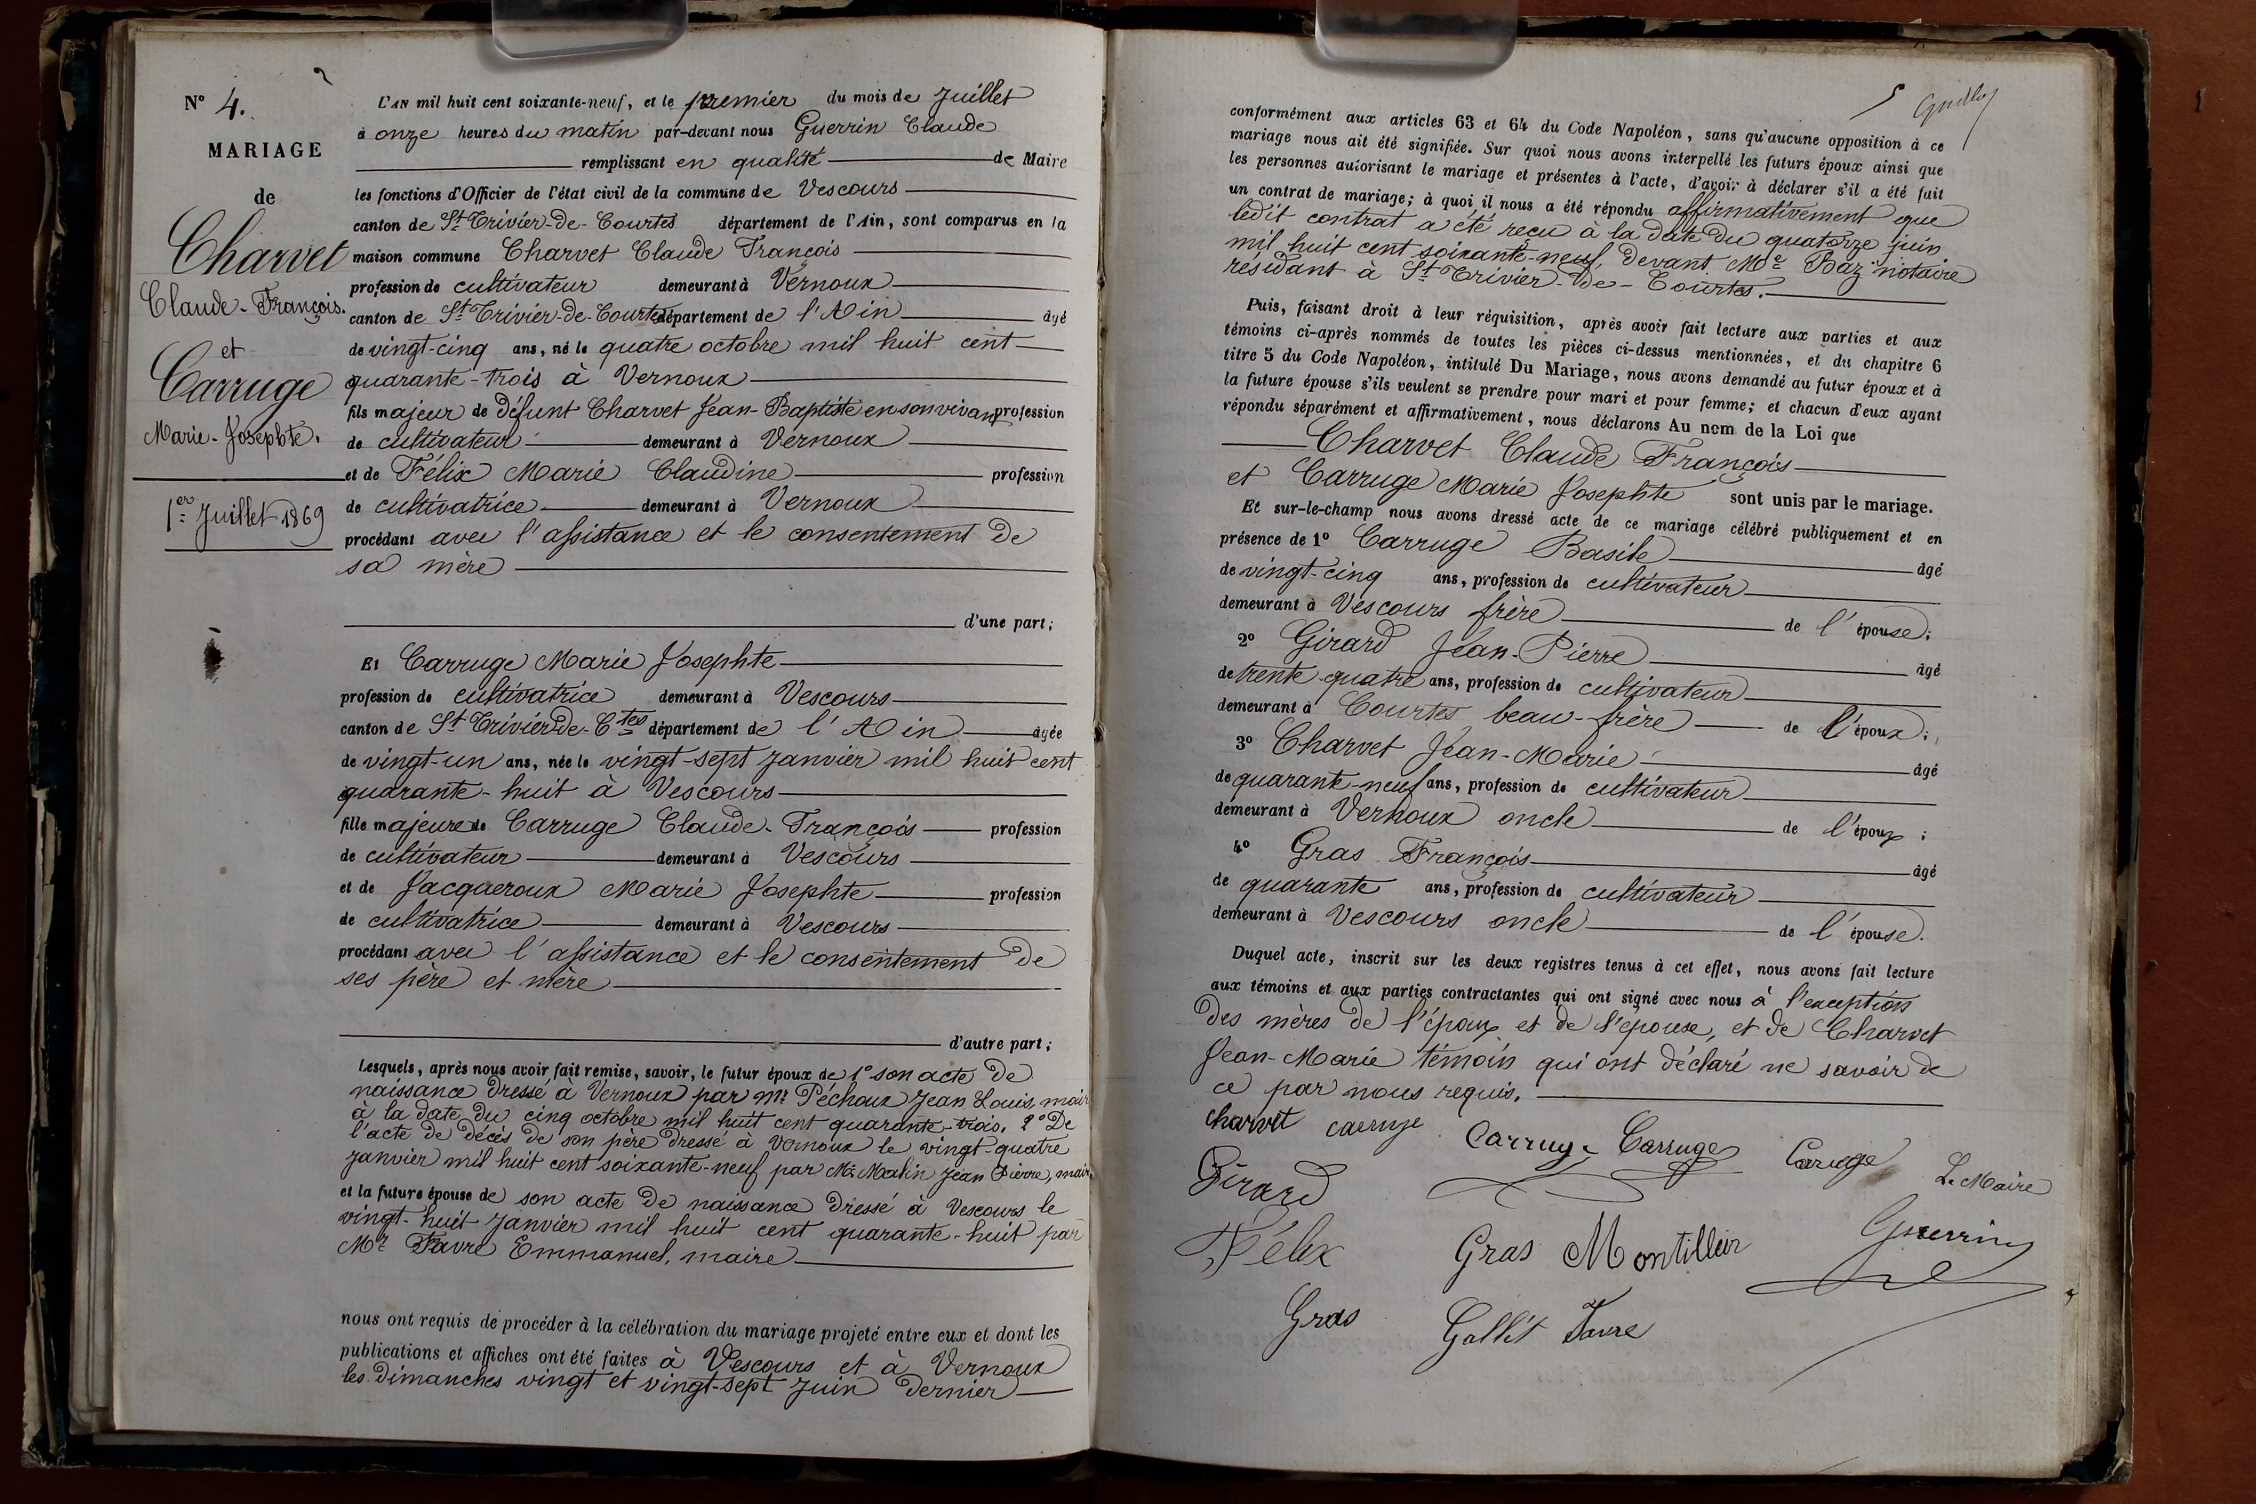 N° 4.
MARIAGE
de
Charvet
Claude-François.
et
Carruge
Marie-Josephte.
1er Juillet 1869
L'AN mil huit cent soixante-neuf, et le premier du mois de Juillet
à onze heures du matin par-devant nous Guerrin Claude
remplissant en qualité de Maire
les fonctions d'Officier de l'état civil de la commune de Vescours
canton de St Trivier-de-Courtes département de l'Ain, sont comparus en la
maison commune Charvet Claude François
profession de cultivateur demeurant à Vernoux
canton de St Trivier-de-Courtes département de l'Ain âgé
de vingt-cinq ans, né le quatre octobre mil huit cent
quarante-trois à Vernoux
fils majeur de défunt Charvet Jean-Baptiste en son vivant profession
de cultivateur demeurant à Vernoux
et de Félix Marie Claudine profession
de cultivatrice demeurant à Vernoux
procédant avec l'assistance et le consentement de
sa mère
d'une part;
Et Carruge Marie Josephte
profession de cultivatrice demeurant à Vescours
canton de St Trivier-de-Ctes département de l'Ain âgée
de vingt-un ans, née le vingt-sept janvier mil huit cent
quarante-huit à Vescours
fille majeure de Carruge Claude-François profession
de cultivateur demeurant à Vescours
et de Jacqueroux Marie Josephte profession
de cultivatrice demeurant à Vescours
procédant avec l'assistance et le consentement de
ses père et mère
d'autre part;
Lesquels, après nous avoir fait remise, savoir, le futur époux de 1° son acte de
naissance dressé à Vernoux par Mr Péchoux Jean Louis, maire
à la date du cinq octobre mil huit cent quarante-trois. 2° De
l'acte de décès de son père dressé à Vernoux le vingt-quatre
janvier mil huit cent soixante-neuf par Mr Malin Jean Pierre, maire
et la future épouse de son acte de naissance dressé à Vescours le
vingt-huit janvier mil huit cent quarante-huit par
Mr Favre Emmanuel, maire
nous ont requis de procéder à la célébration du mariage projeté entre eux et dont les
publications et affiches ont été faites à Vescours et à Vernoux
les dimanches vingt et vingt-sept juin dernier
5
conformément aux articles 63 et 64 du Code Napoléon, sans qu'aucune opposition à ce
mariage nous ait été signifiée. Sur quoi nous avons interpellé les futurs époux ainsi que
les personnes autorisant le mariage et présentes à l'acte, d'avoir à déclarer s'il a été fait
un contrat de mariage; à quoi il nous a été répondu affirmativement que
ledit contrat a été reçu à la date du quatorze juin
mil huit cent soixante-neuf, devant Me Baz notaire
résidant à St Trivier-de-Courtes.
Puis, faisant droit à leur réquisition, après avoir fait lecture aux parties et aux
témoins ci-après nommés de toutes les pièces ci-dessus mentionnées, et du chapitre 6
titre 5 du Code Napoléon, intitulé Du Mariage, nous avons demandé au futur époux et à
la future épouse s'ils veulent se prendre pour mari et pour femme; et chacun d'eux ayant
répondu séparément et affirmativement, nous déclarons Au nom de la Loi que
Charvet Claude François
et Carruge Marie Josephte sont unis par le mariage.
Et sur-le-champ nous avons dressé acte de ce mariage célébré publiquement et en
présence de 1° Carruge Basile âgé
de vingt-cinq ans, profession de cultivateur
demeurant à Vescours frère de l'épouse;
2° Girard Jean-Pierre âgé
de trente-quatre ans, profession de cultivateur
demeurant à Courtes beau-frère de l'époux;
3° Charvet Jean-Marie âgé
de quarante-neuf ans, profession de cultivateur
demeurant à Vernoux oncle de l'époux;
4° Gras François âgé
de quarante ans, profession de cultivateur
demeurant à Vescours oncle de l'épouse.
Duquel acte, inscrit sur les deux registres tenus à cet effet, nous avons fait lecture
aux témoins et aux parties contractantes qui ont signé avec nous à l'exception
des mères de l'époux et de l'épouse, et de Charvet
Jean-Marie témoin qui ont déclaré ne savoir de
ce par nous requis.
charvet carruge Carruge Carruge Caruge Le Maire
Girard
Félix Gras Montillier Guerrin
Gras Gallet Favre